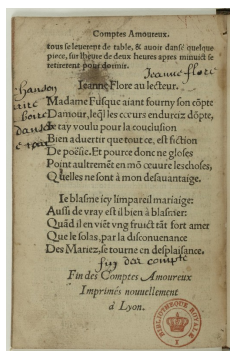 Comptes Amoureux.
tous se leuerent de table, & auoir dansé quelque
piece, sur lheure de deux heures apres minuict se
retirerent pour dormir.
Jeanne flore
Ieanne Flore au lecteur.
chanson
Madame Fusque aiant fourny son cõpte
rire
Damour, leq̃l les cœurs endurciz dõpte,
boire
danser
Te ray voulu pour la conclusion
Bien aduertir que tout ce, est fiction
De poësie. Et pource donc ne gloses
Point aultremẽt en mõ œuure les choses,
Quelles ne sont à mon desauantaige.
Ie blasme icy limpareil mariaige:
Aussi de vray est il bien à blasmer:
Quãd il en viẽt vng fruict tãt fort amer
Que le solas, par la disconuenance
Des Mariez, se tourne en desplaisance.
compte
Fin des Comptes Amoureux
Imprimés nouuellement
à Lyon.
BIBLIOTHEQUE ROYALE
I